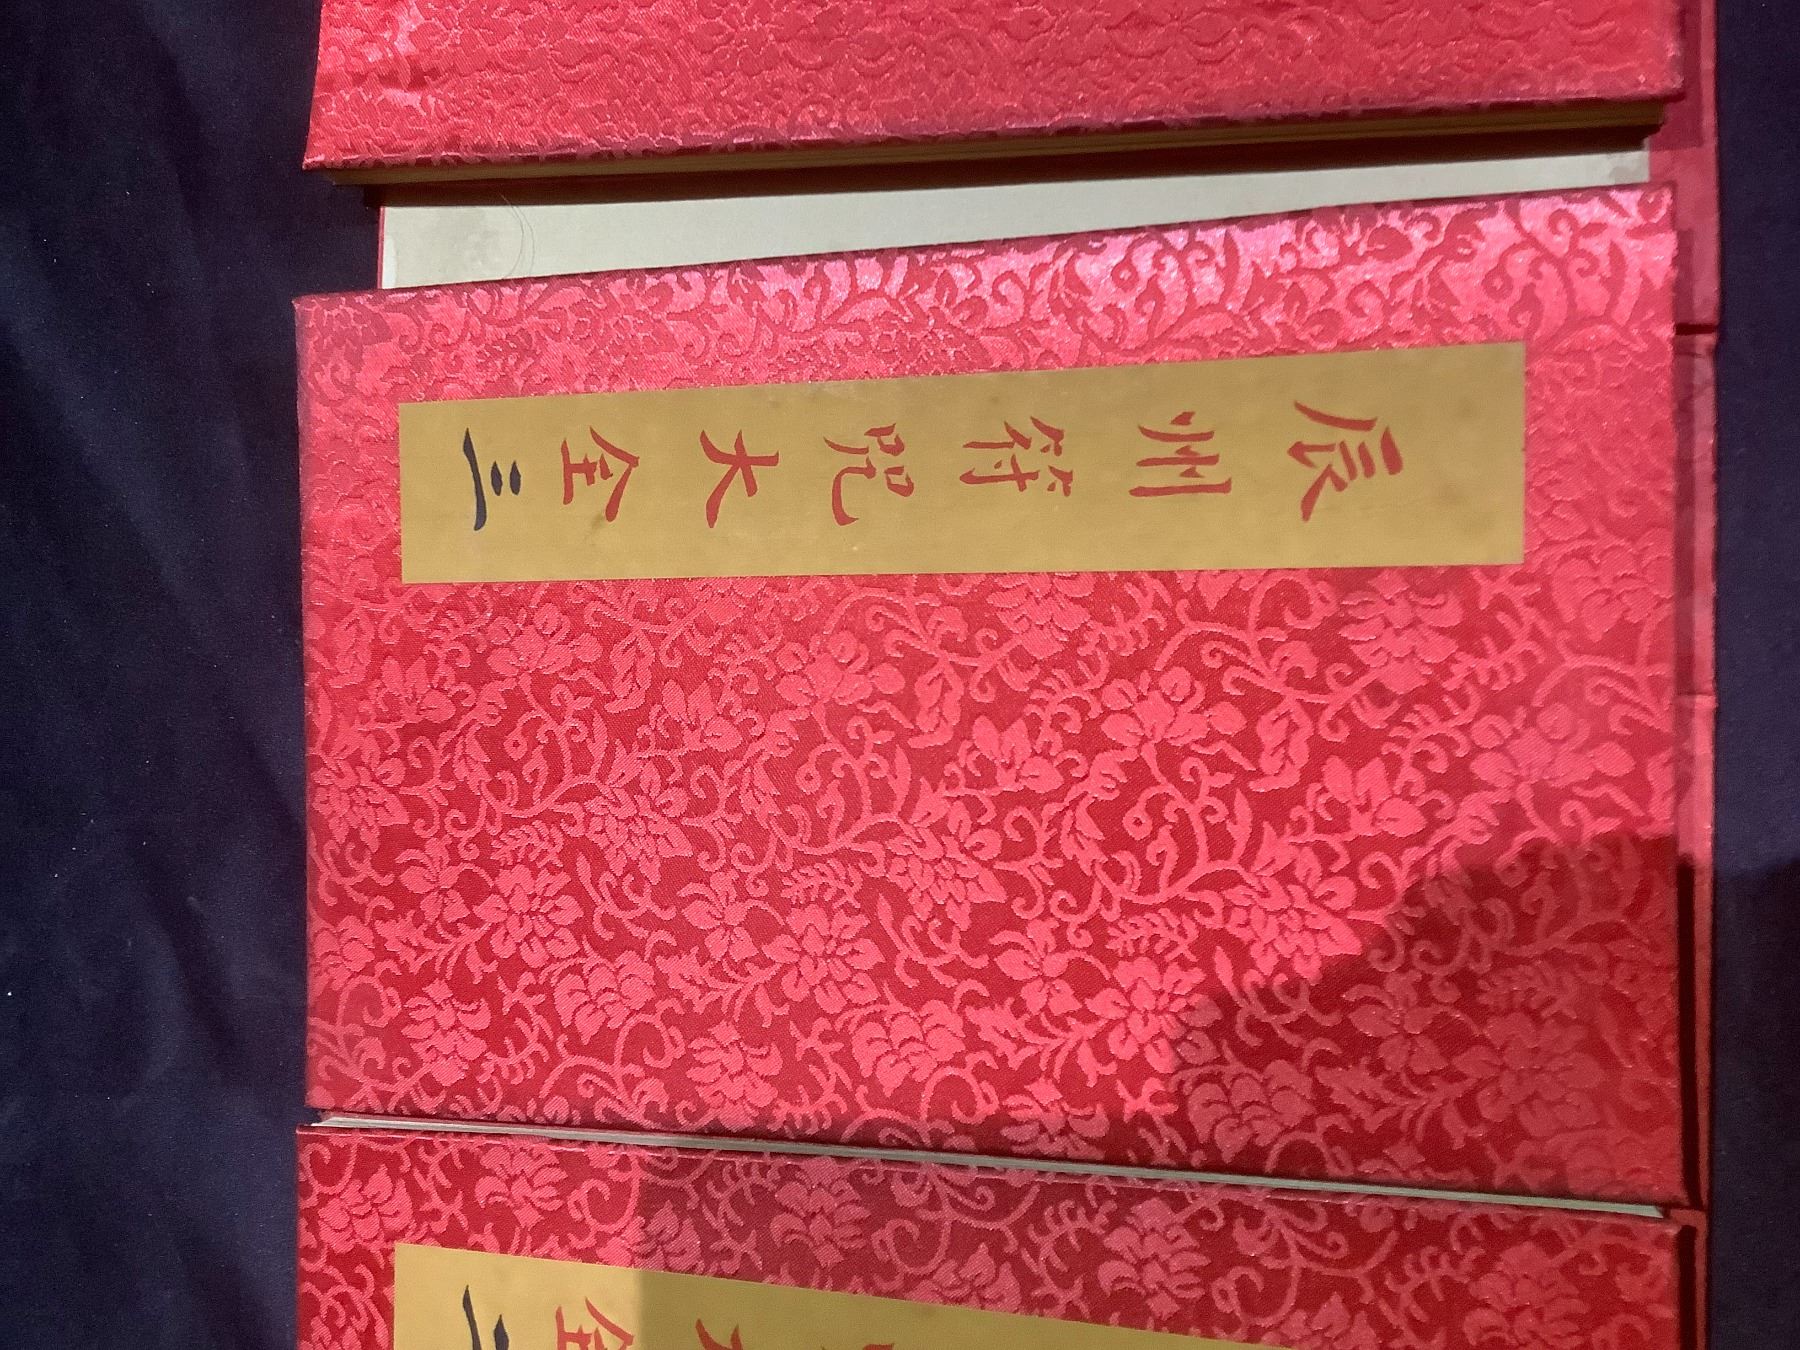 辰州符咒大全三
大全二